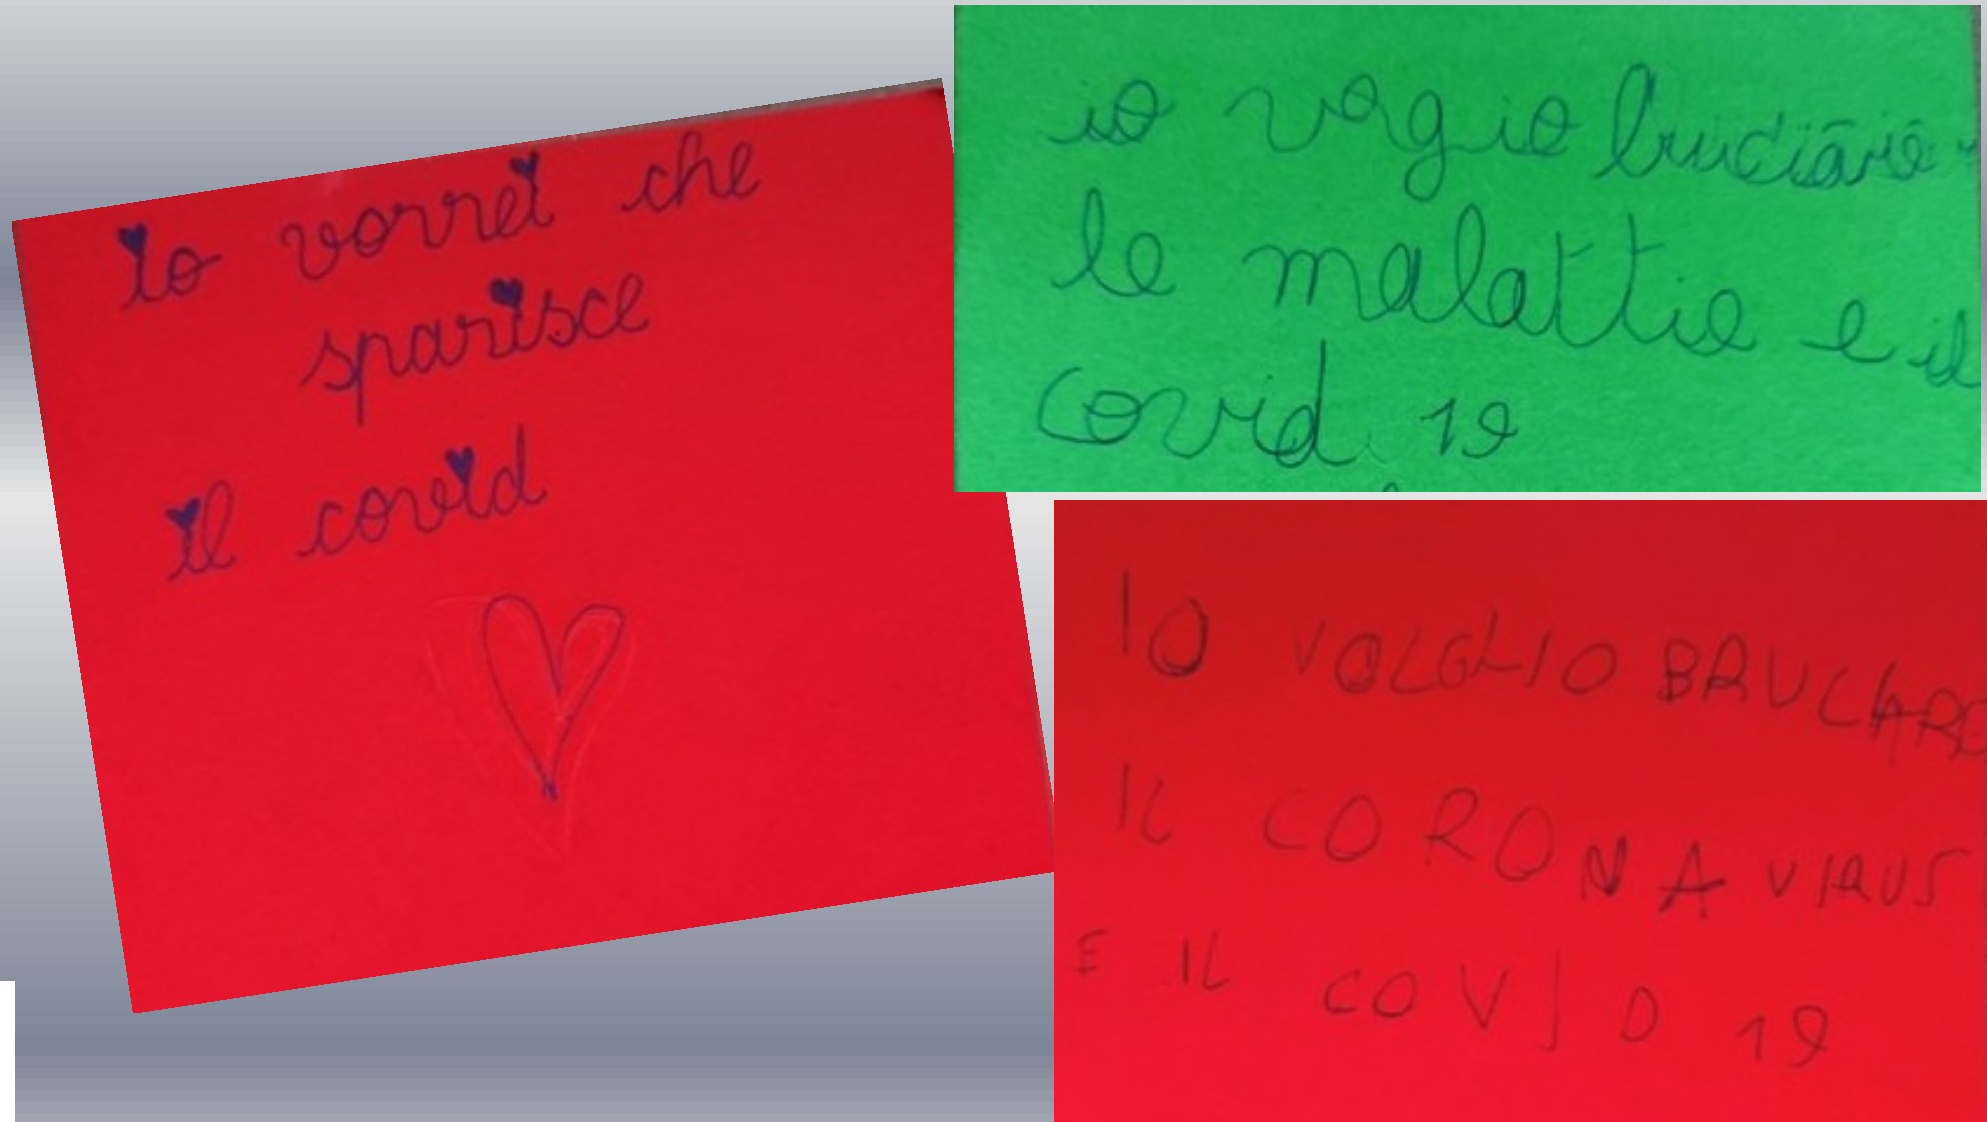 Io vorrei che
sparisce
il covid
io vogio bruciare
le malattie e il
covid 19
IO VOLGLIO BRUCIARE
IL CORONA VIRUS
E IL COVID 19